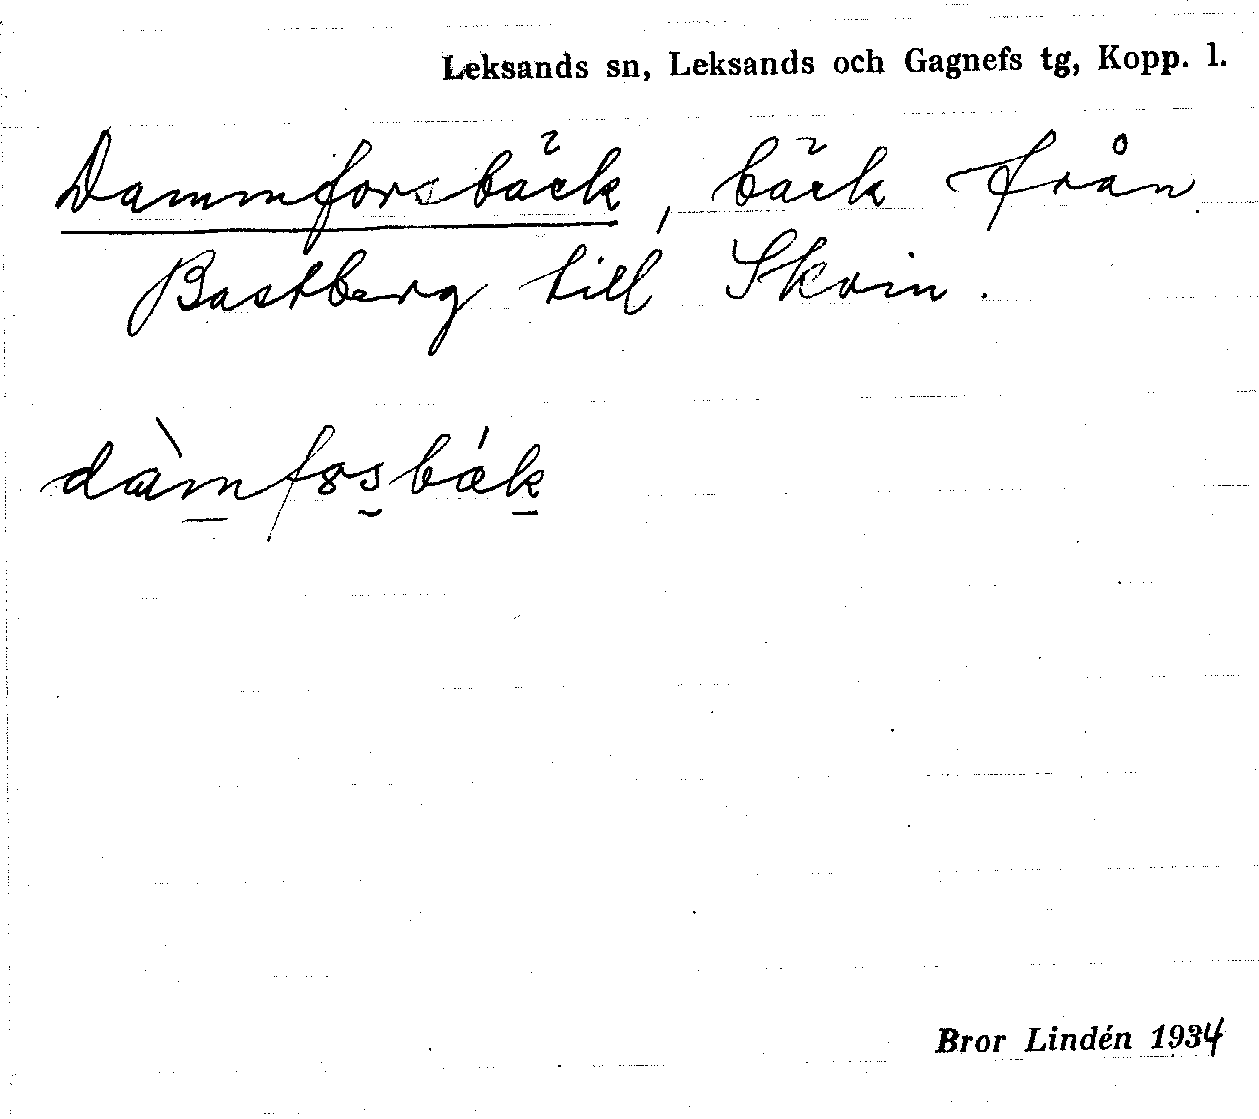 Leksands sn, Leksands och Gagnefs tg, Kopp. l.
Dammforsbäck, bäck från
Bastberg till Skvin.
dàmfosbák
Bror Lindén 1934